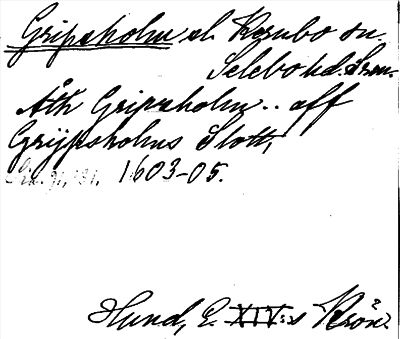 Gripsholm sl. Kernbo sn.
Selebo hd. Srm.
Åtk Gripsholm .. aff
Grijpsholms Slott,
1603-05.
Hund, E. XIV:s Krön.